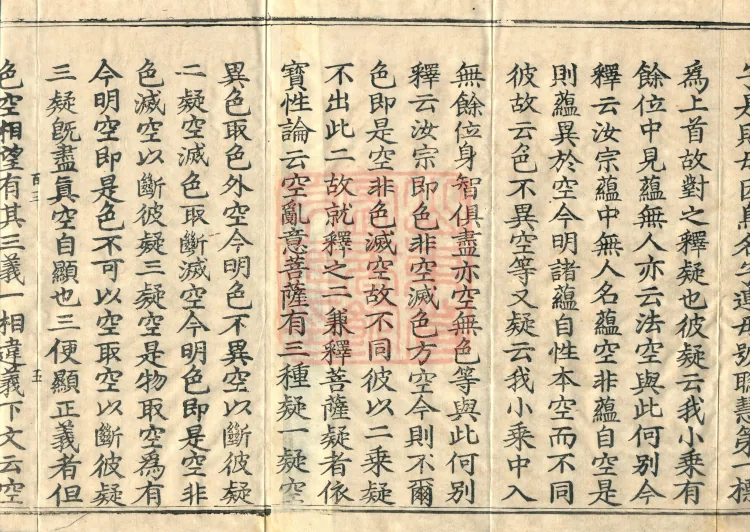 名之遠母號聰慧第一標
爲上首故對之釋疑也彼疑云我小乘有
餘位中見蘊無人亦云法空與此何別今
釋云汝宗蘊中無人名蘊空非蘊自空是
則蘊異於空今明諸蘊自性本空而不同
彼故云色不異空等又疑云我小乘中入
無餘位身智俱盡亦空無色等與此何別
釋云汝宗即色非空滅色方空今則不爾
色即是空非色滅空故不同彼以二乘疑
不出此二故就釋之二兼釋菩薩疑者依
寶性論云空亂意菩薩有三種疑一疑空
異色取色外空今明色不異空以斷彼疑
二疑空滅色取斷滅空今明色即是空非
色滅空以斷彼疑三疑空是物取空爲有
今明空即是色不可以空取空以斷彼疑
三疑既盡眞空自顯也三便顯正義者但
色空相望有其三義一相違義下文云空